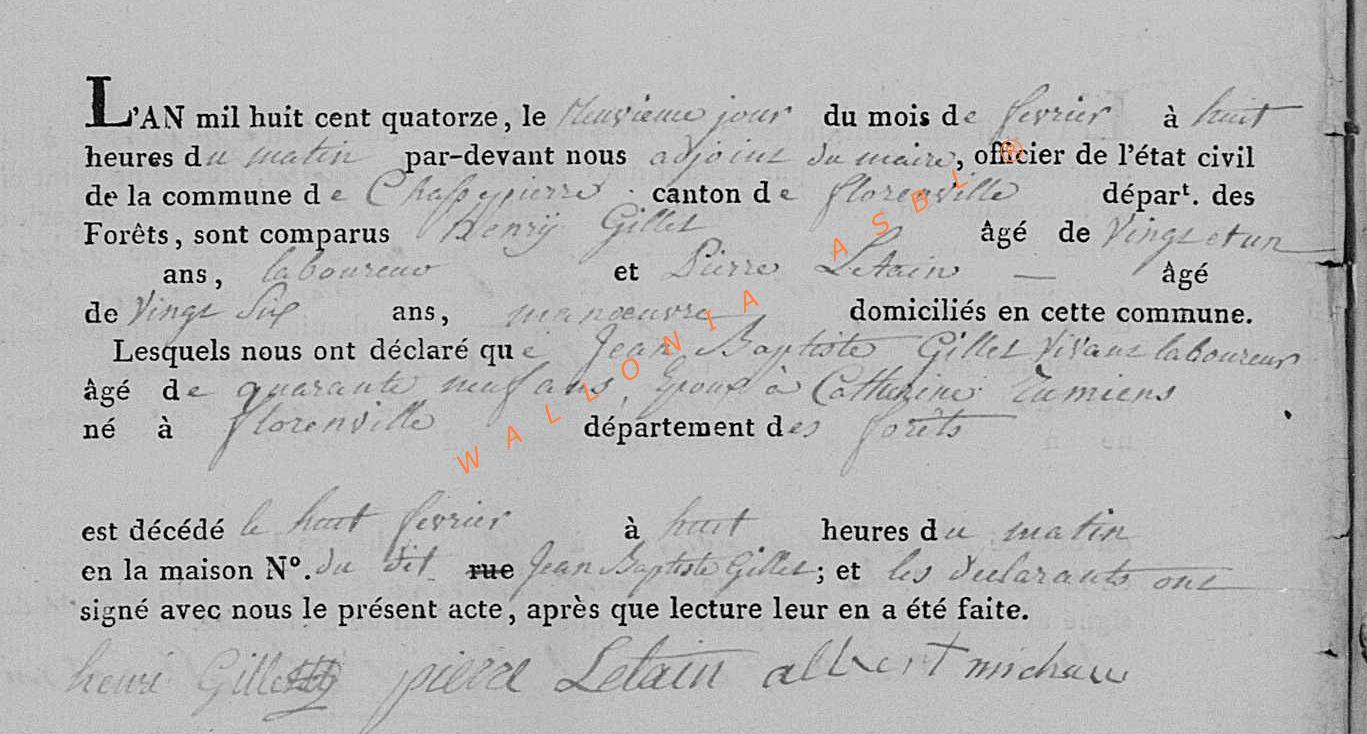 L'AN mil huit cent quatorze, le neuvieme jour du mois de fevrier à huit
heures du matin par-devant nous adjoint du maire, officier de l'état civil
de la commune de Chassepierre canton de florenville départ. des
Forêts, sont comparus Henrÿ Gillet âgé de Vingt et un
ans, laboureur et Pierre Letain — âgé
de Vingt Six ans, manoeuvre domiciliés en cette commune.
Lesquels nous ont déclaré que Jean Baptiste Gillet vivant laboureur
âgé de quarante neuf ans, Epoux à Catherine
né à florenville département des forêts
est décédé le huit fevrier à huit heures du matin
en la maison N°. du dit rue Jean Baptiste Gillet; et les declarants ont
signé avec nous le présent acte, après que lecture leur en a été faite.
henri Gillet pierre Letain albert michaux
WALLONIA ASBL ®